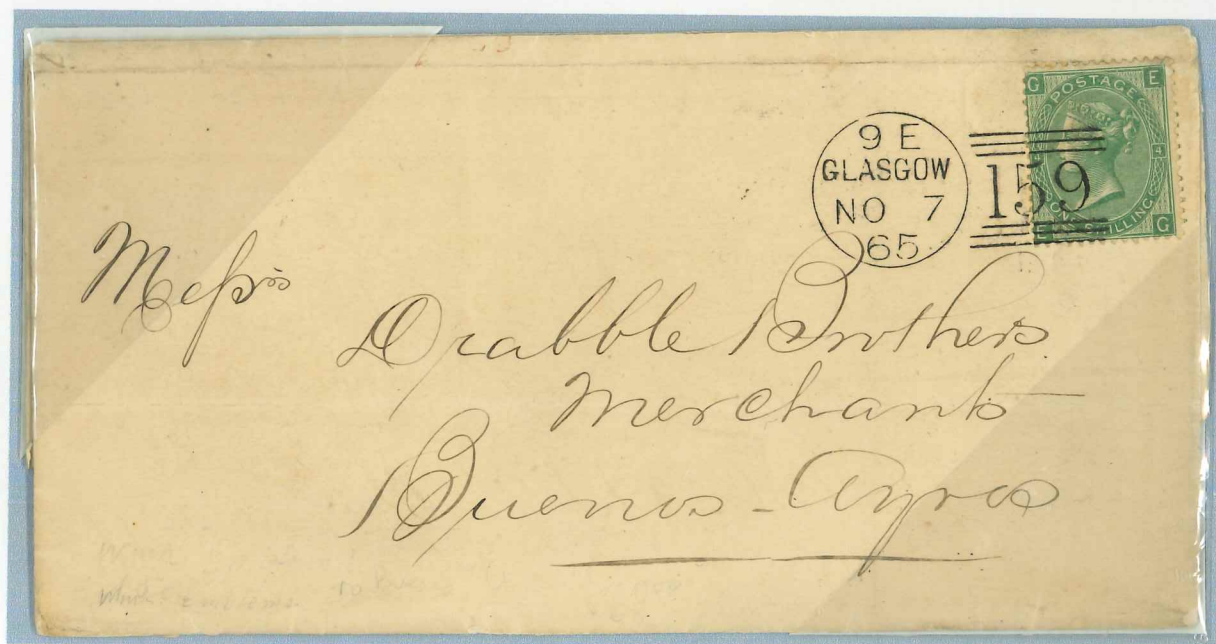 G E
POSTAGE
4
ONE SHILLING
E G
9 E
GLASGOW
NO 7
65
159
Messrs
Drabble Brothers
Merchants
Buenos-Ayres